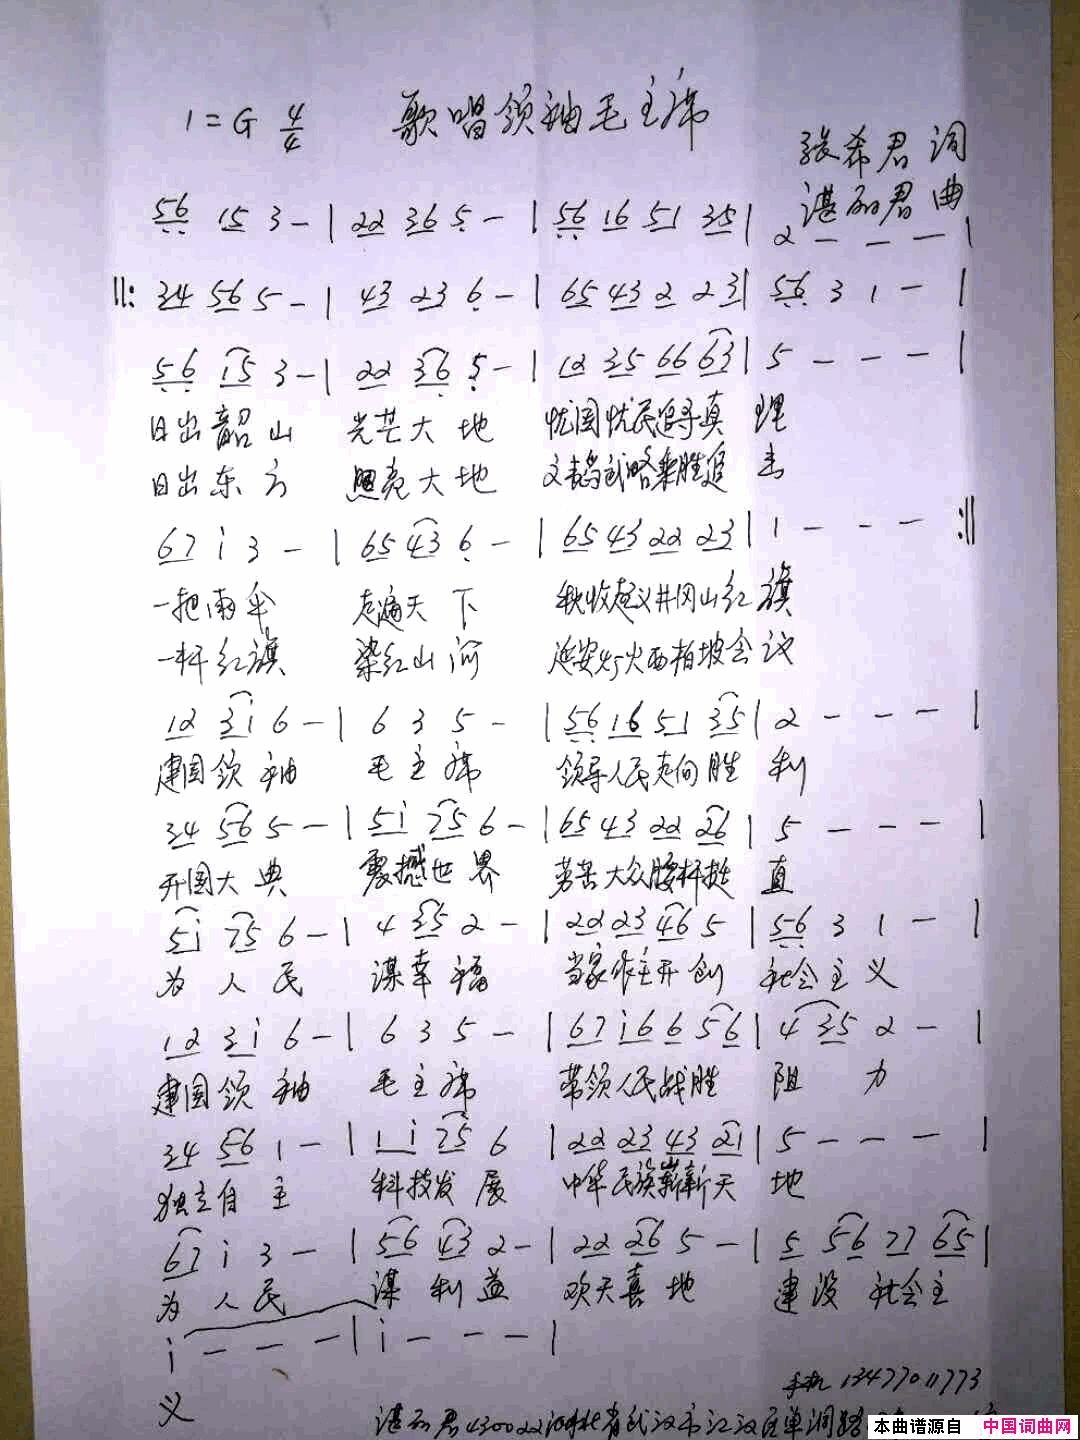 1=G 4/4 歌唱领袖毛主席
张希君 词
湛丽君 曲
56 15 3 - | 22 36 5 - | 56 16 51 35 | 2 - - - |
||: 34 56 5 - | 43 23 6 - | 65 43 2 23 | 56 3 1 - |
56 15 3 - | 22 36 5 - | 12 35 66 63 | 5 - - - |
日出韶山 光芒大地 忧国忧民追寻真理
日出东方 照亮大地 文韬武略乘胜追击
67 i 3 - | 65 43 6 - | 65 43 22 23 | 1 - - - :||
一把雨伞 走遍天下 秋收起义井冈山红旗
一杆红旗 染红山河 延安灯火西柏坡会议
12 3i 6 - | 6 3 5 - | 56 16 51 35 | 2 - - - |
建国领袖 毛主席 领导人民走向胜利
34 56 5 - | 5i 75 6 - | 65 43 22 26 | 5 - - - |
开国大典 震撼世界 劳苦大众腰杆挺直
5i 75 6 - | 4 35 2 - | 22 23 46 5 | 56 3 1 - |
为人民 谋幸福 当家作主开创 社会主义
12 3i 6 - | 6 3 5 - | 67 i6 6 56 | 4 35 2 - |
建国领袖 毛主席 带领人民战胜 阻力
34 56 1 - | 1i 75 6 | 22 23 43 21 | 5 - - - |
独立自主 科技发展 中华民族崭新天地
67 i 3 - | 56 43 2 - | 22 26 5 - | 5 56 77 65 |
为人民 谋利益 欢天喜地 建设社会主
i - - - | i - - - |
义
手机 13477011773
湛丽君430022湖北省武汉市江汉区单洞路
本曲谱源自 中国词曲网